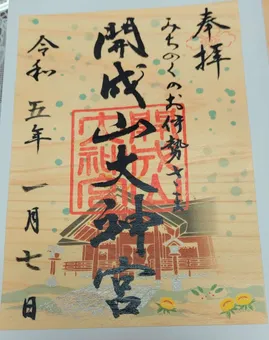 奉拝
みちのくのお伊勢さま
開成山大神宮
開成山大神宮
令和五年一月七日